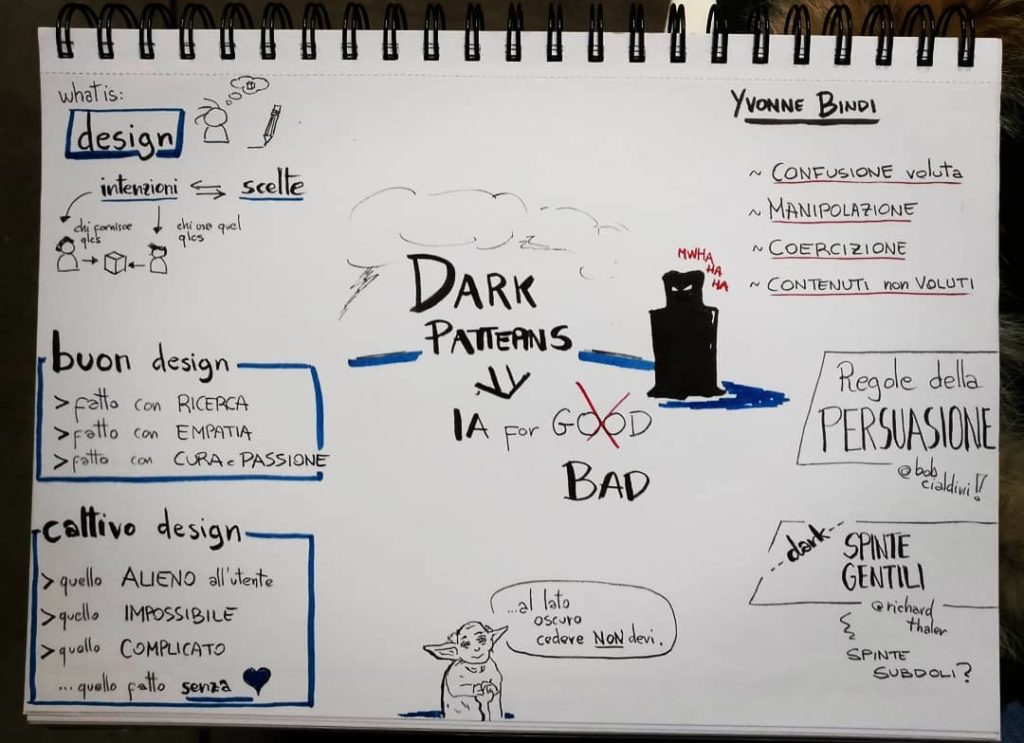 what is:
design
intenzioni ⇆ scelte
chi fornisce
qlcs
chi usa quel
qlcs
buon design
> fatto con RICERCA
> fatto con EMPATIA
> fatto con CURA e PASSIONE
cattivo design
> quello ALIENO all'utente
> quello IMPOSSIBILE
> quello COMPLICATO
... quello fatto senza
DARK
PATTERNS
IA for GOOD
BAD
MWHA
HA
HA
...al lato
oscuro
cedere NON devi.
YVONNE BINDI
~ CONFUSIONE voluta
~ MANIPOLAZIONE
~ COERCIZIONE
~ CONTENUTI non VOLUTI
Regole della
PERSUASIONE
@bob
cialdini!!
dark
SPINTE
GENTILI
@richard
thaler
SPINTE
SUBDOLI?